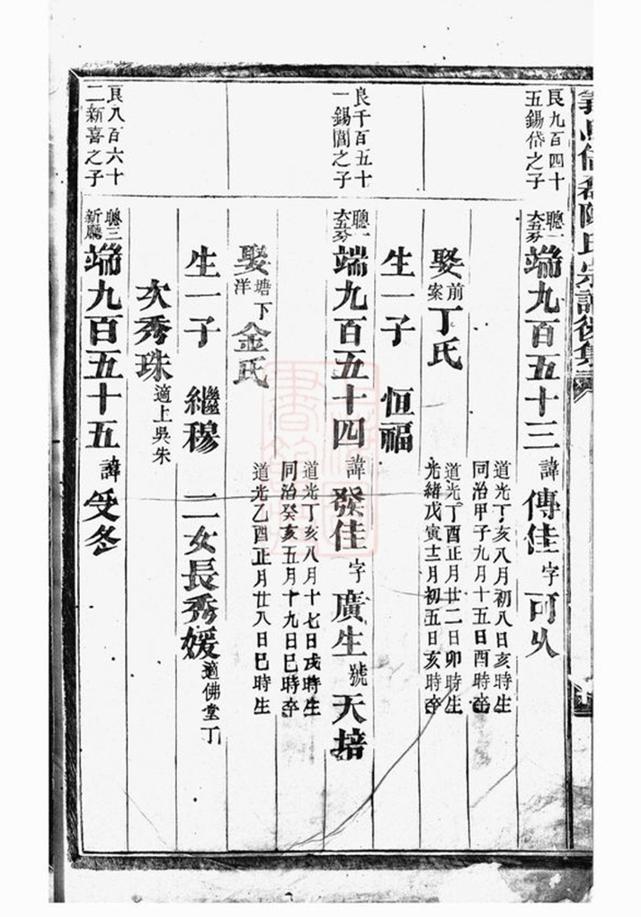 陳氏宗譜後集
艮九百四十
五錫岱之子
聰一
大五分
端九百五十三 諱傳佳字可久
道光丁亥八月初八日亥時生
同治甲子九月十五日酉時卒
娶前案丁氏
道光丁酉正月廿二日卯時生
光緒戊寅十二月初五日亥時卒
生一子 恒福
良千百五十
一錫閶之子
聰一
大五分
端九百五十四 諱發佳字廣生號天培
道光丁亥八月十七日戌時生
同治癸亥五月十九日巳時卒
娶塘下洋金氏
道光乙酉正月廿八日巳時生
生一子 繼穆 二女長秀媛適佛堂丁
次秀珠適上吳朱
艮八百六十
二新喜之子
聰三
新廳
端九百五十五 諱受冬